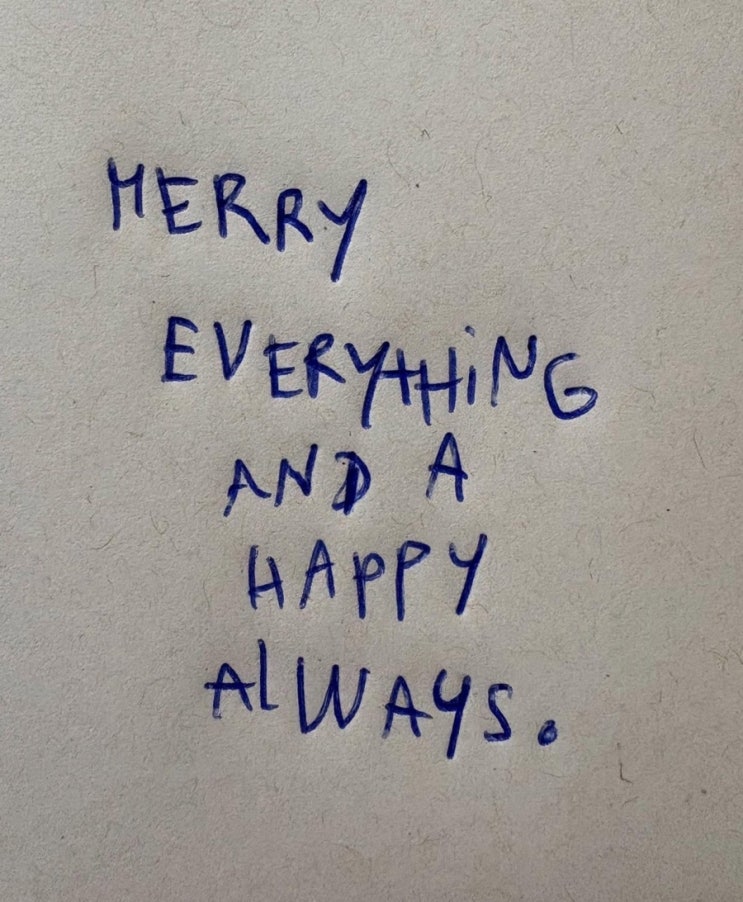 MERRY
EVERYTHiNG
AND A
HAPPY
AlWAYS.